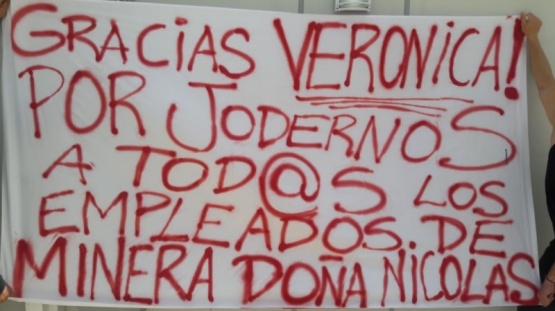 GRACIAS VERONICA!
POR JODERNOS
A TOD@S LOS
EMPLEADOS. DE
MINERA DOÑA NICOLASS